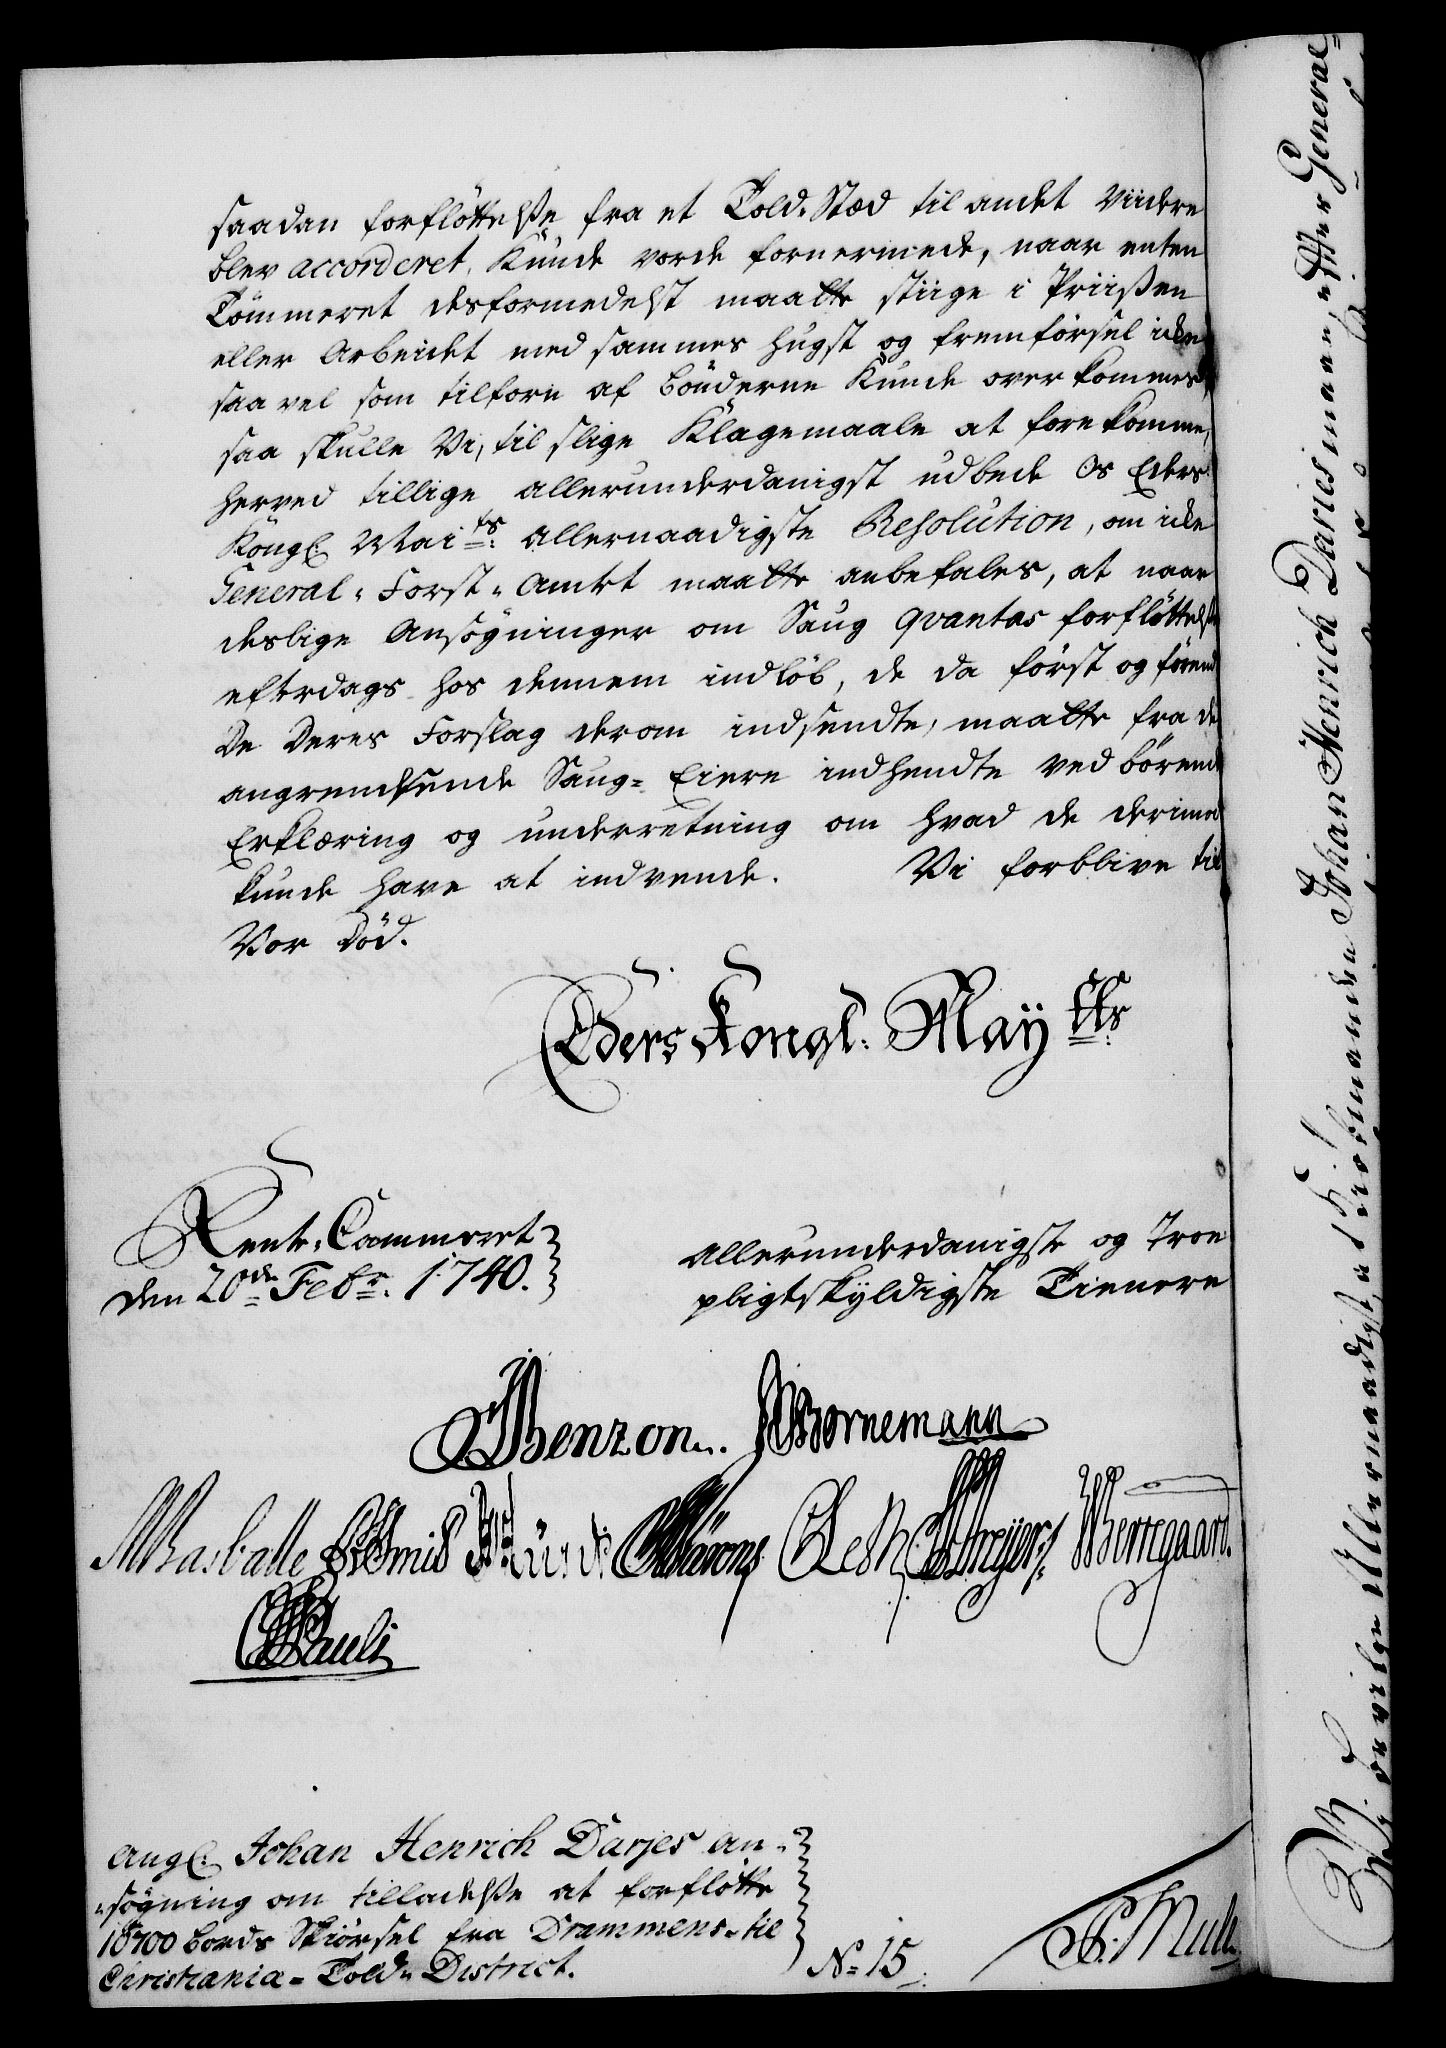 saadan forfløttelße fra et Told-Stæd til andet viidere
blev accorderet, kunde vorde fornermede, naar enten
Tømmeret desformedelst maatte stiige i Priisen
eller Arbeidet med sammes hugst og fremførsel icke
saa vel som tilforn af bønderne kunde overkommes,
saa skulle Vi, til slige Klagemaale at forekomme,
herved tillige allerunderdanigst udbede Os Eders
Kongl: Maits: allernaadigste Resolution, om icke
General-Forst-Amtet maatte anbefales, at naar
deslige Ansøgninger om Saug qvantas forfløttelße
efterdags hos dennem indløb, de da først og førend
De Deres Forslag derom indsendte, maatte fra de
angrendsende Saug-Eiere indhendte ved børende
Erklæring og underretning om hvad de derimod
kunde have at indvende. Vi forblive til
Vor Død.
Eders Kongl. Mayтts:
Rente-Cammeret
den 20de Febr. 1740.
allerunderdanigste og Troe
pligtskyldigste Tienere
Benzon. Bornemann
Basballe
Wertegaard.
Pauli
angl: Johan Henrich Darjes an-
søgning om tilladelße at forfløtte
18700 bords Skiørsel fra Drammens til
Christiania-Told-District.
No 15
Johan Henrich Daries maae, efter General-
bevilge Allernaadigst, at